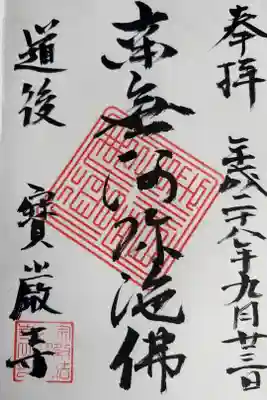 奉拝
平成二十八年九月廿三日
南無阿弥陀佛
道後
寶厳寺